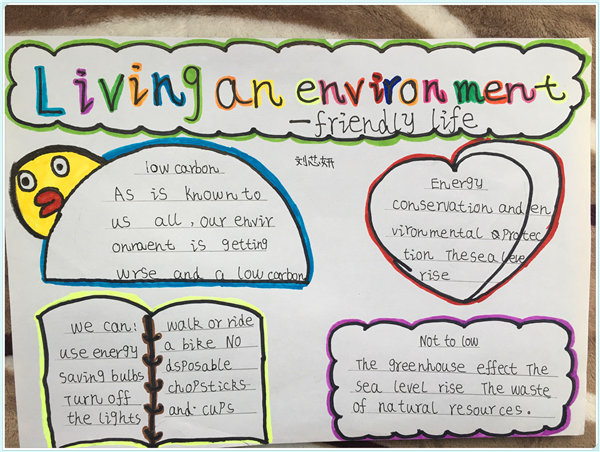 Living an environment
-friendly life
刘芯妍
low carbon
As is known to
us all, our envir
onment is getting
wrse and a low carbon
Energy
conservation and en
vironmental & Protec
tion The sea level
rise
we can:
use energy
saving bulbs
Turn off
the lights
walk or ride
a bike No
dsposable
chopsticks
and. cups
Not to low
The greenhouse effect The
sea level rise The waste
of natural resources.